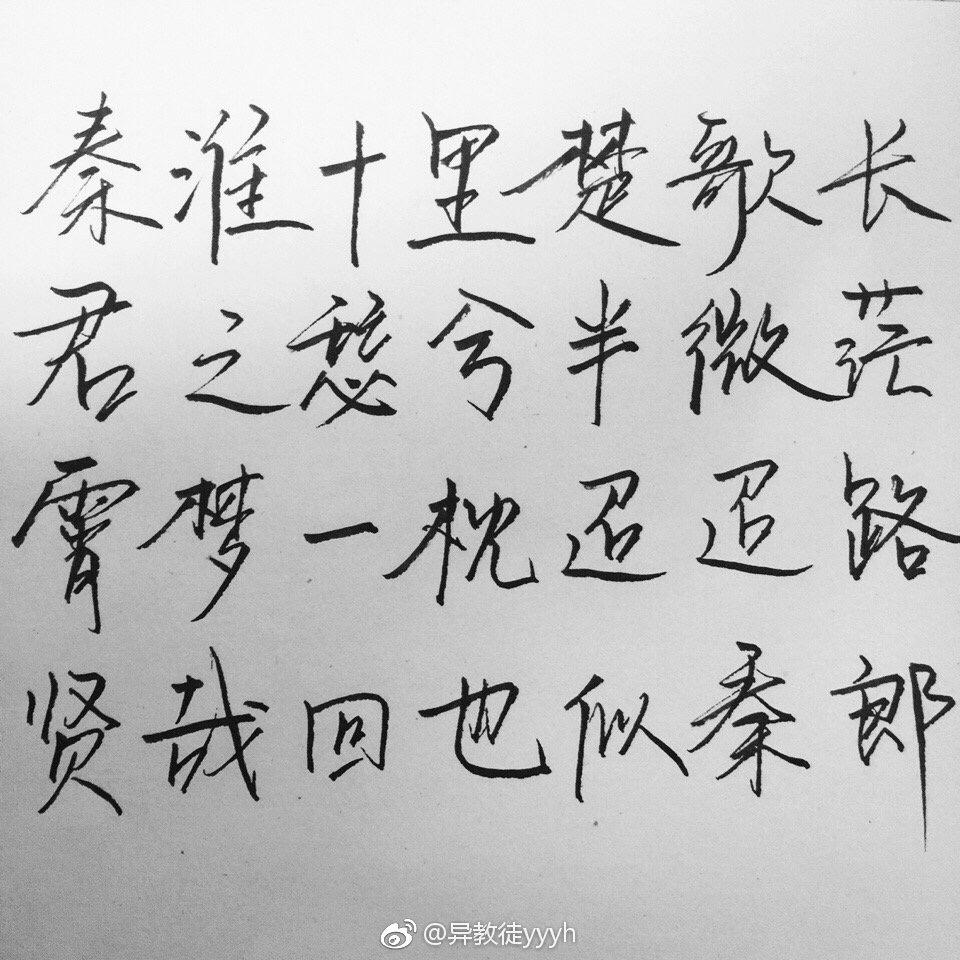 秦淮十里楚歌长
君之愁兮半微茫
霄梦一枕迢迢路
贤哉回也似秦郎
@异教徒yyyh